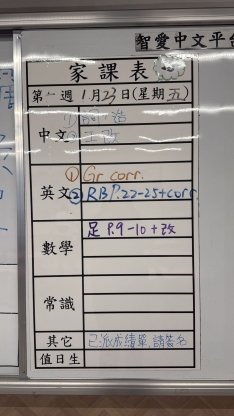 智愛中文平台
家課表
第 週 1月23日(星期五)
中文 ① 詞、造
② 改
英文 ① Gr corr.
② RB P.22-25+corr.
數學 足 P.9-10 + 改
常識
其它 已派成績單,請簽名
值日生